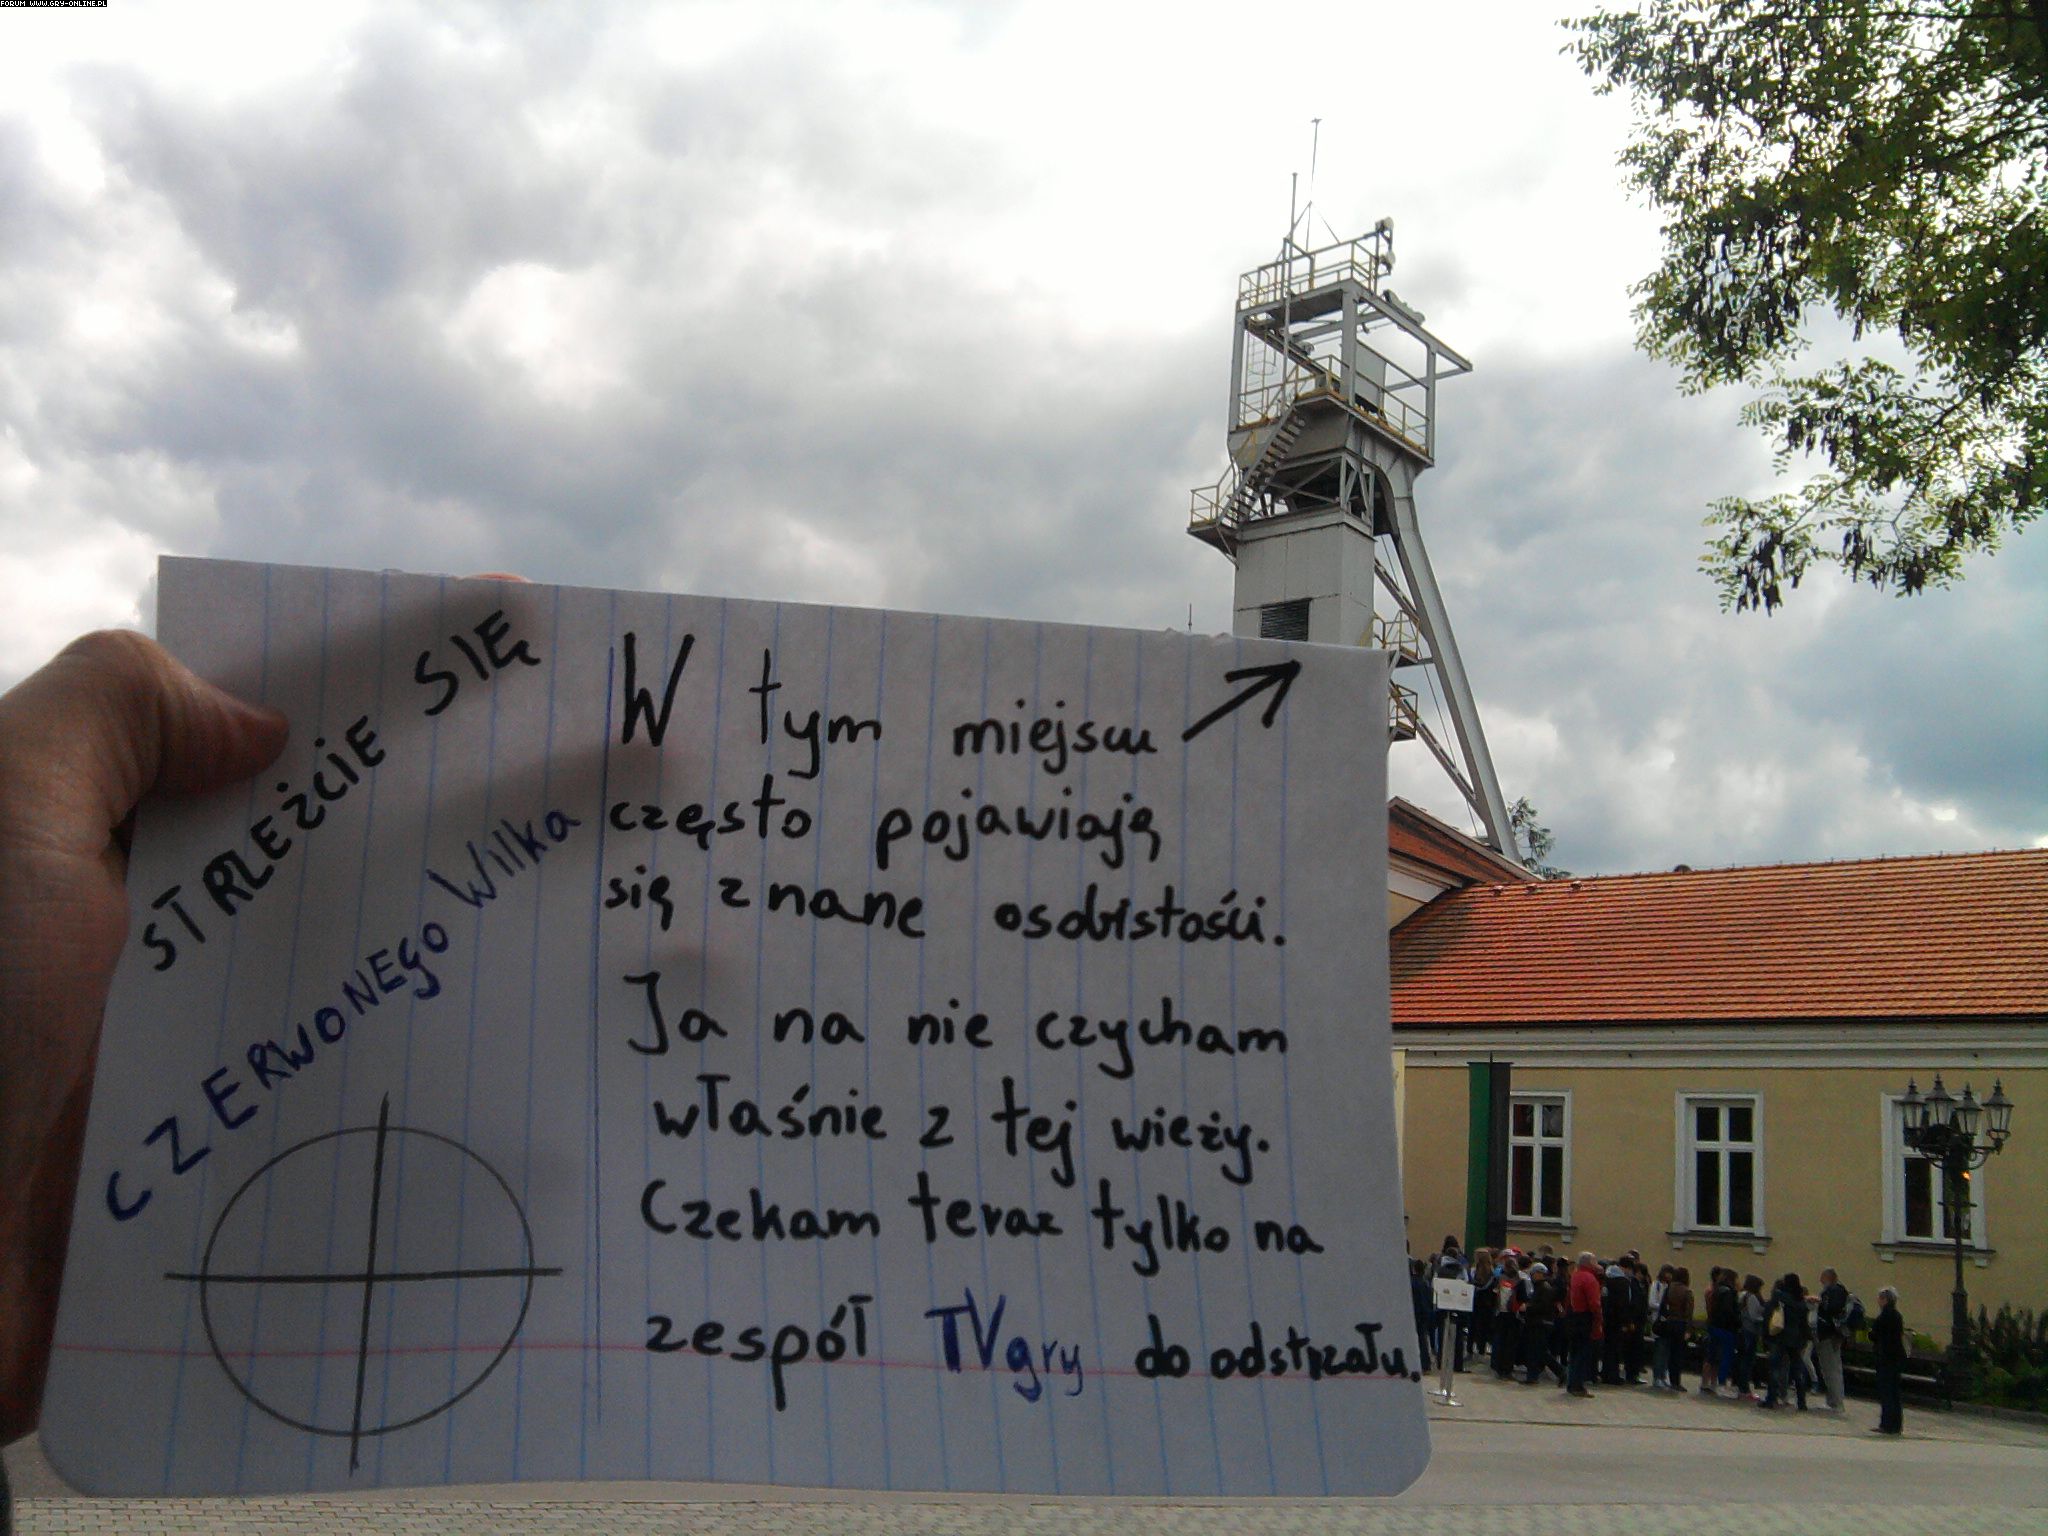 FORUM WWW.GRY-ONLINE.PL
STRZEŻCIE SIĘ
CZERWONEGO Wilka
W tym miejscu
często pojawiają
się znane osobistości.
Ja na nie czycham
właśnie z tej wieży.
Czekam teraz tylko na
zespół TVgry do odstrzału.